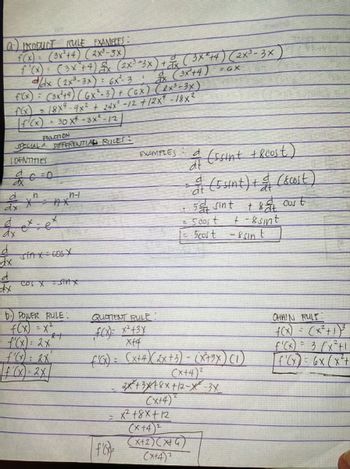 a) PRODUCT RULE EXAMPLES:
f(x) = (3x²+4)(2x³-3x)
f'(x) = (3x²+4) d/dx (2x³-3x) + d/dx (3x²+4)(2x³-3x)
d/dx (2x³-3x) = 6x²-3 ; d/dx (3x²+4) = 6x
f(x) = (3x²+4)(6x²-3) + (6x)(2x³-3x)
f(x) = 18x⁴-9x²+24x²-12+12x⁴-18x²
f'(x) = 30x⁴-3x²-12
FUNCTION
SPECIAL DIFFERENTIAL RULES:
IDENTITIES
d/dx c = 0
d/dx xⁿ = nxⁿ⁻¹
d/dx eˣ = eˣ
d/dx sin x = cos x
d/dx cos x = -sin x
EXAMPLES: d/dt (5sint + 8cost)
= d/dt (5sint) + d/dt (8cost)
= 5 d/dt sint + 8 d/dt cost
= 5cost + -8sint
= 5cost - 8sint
b) POWER RULE:
f(x) = x²
f'(x) = 2x²⁻¹
f'(x) = 2x¹
f'(x) = 2x
QUOTIENT RULE:
f(x) = x²+3x / x+4
f'(x) = (x+4)(2x+3) - (x²+3x)(1) / (x+4)²
= 2x²+3x+8x+12-x²-3x / (x+4)²
= x²+8x+12 / (x+4)²
f'(x) = (x+2)(x+6) / (x+4)²
CHAIN RULE:
f(x) = (x²+1)³
f'(x) = 3(x²+1
f'(x) = 6x(x²+